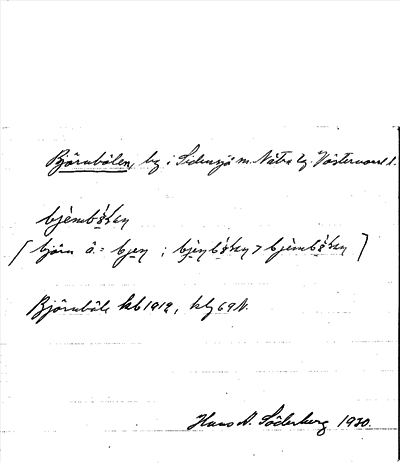 Björnbölen, by i Sidensjö sn. Nätra tg. Västernorrl. l.
bjèmbǿlan
[ björn ä.= bjen ; bjènbǿlan > bjèmbǿlan ]
Björnböle kb 1912, blg 69 N.
Hans A. Söderberg 1930.